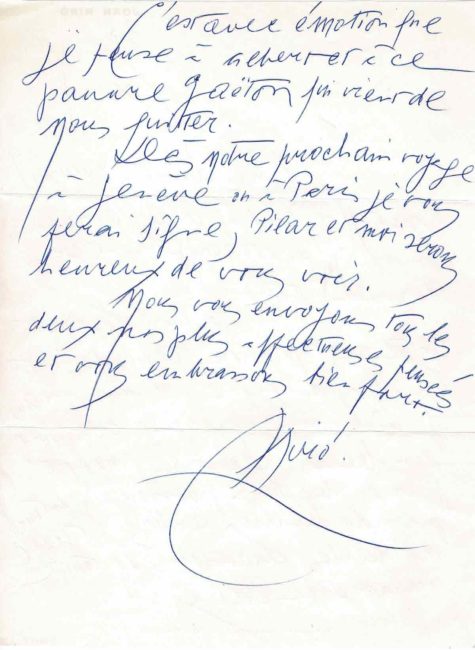 C'est avec émotion que
je pense à et à ce
pauvre Gaëton qui vient de
nous quitter.
Dès notre prochain voyage
à Genève ou à Paris je vous
ferai signe, Pilar et moi serons
heureux de vous voir.
Nous vous envoyons tous les
deux nos plus affectueuses pensées
et vous embrassons bien fort.
Miró.